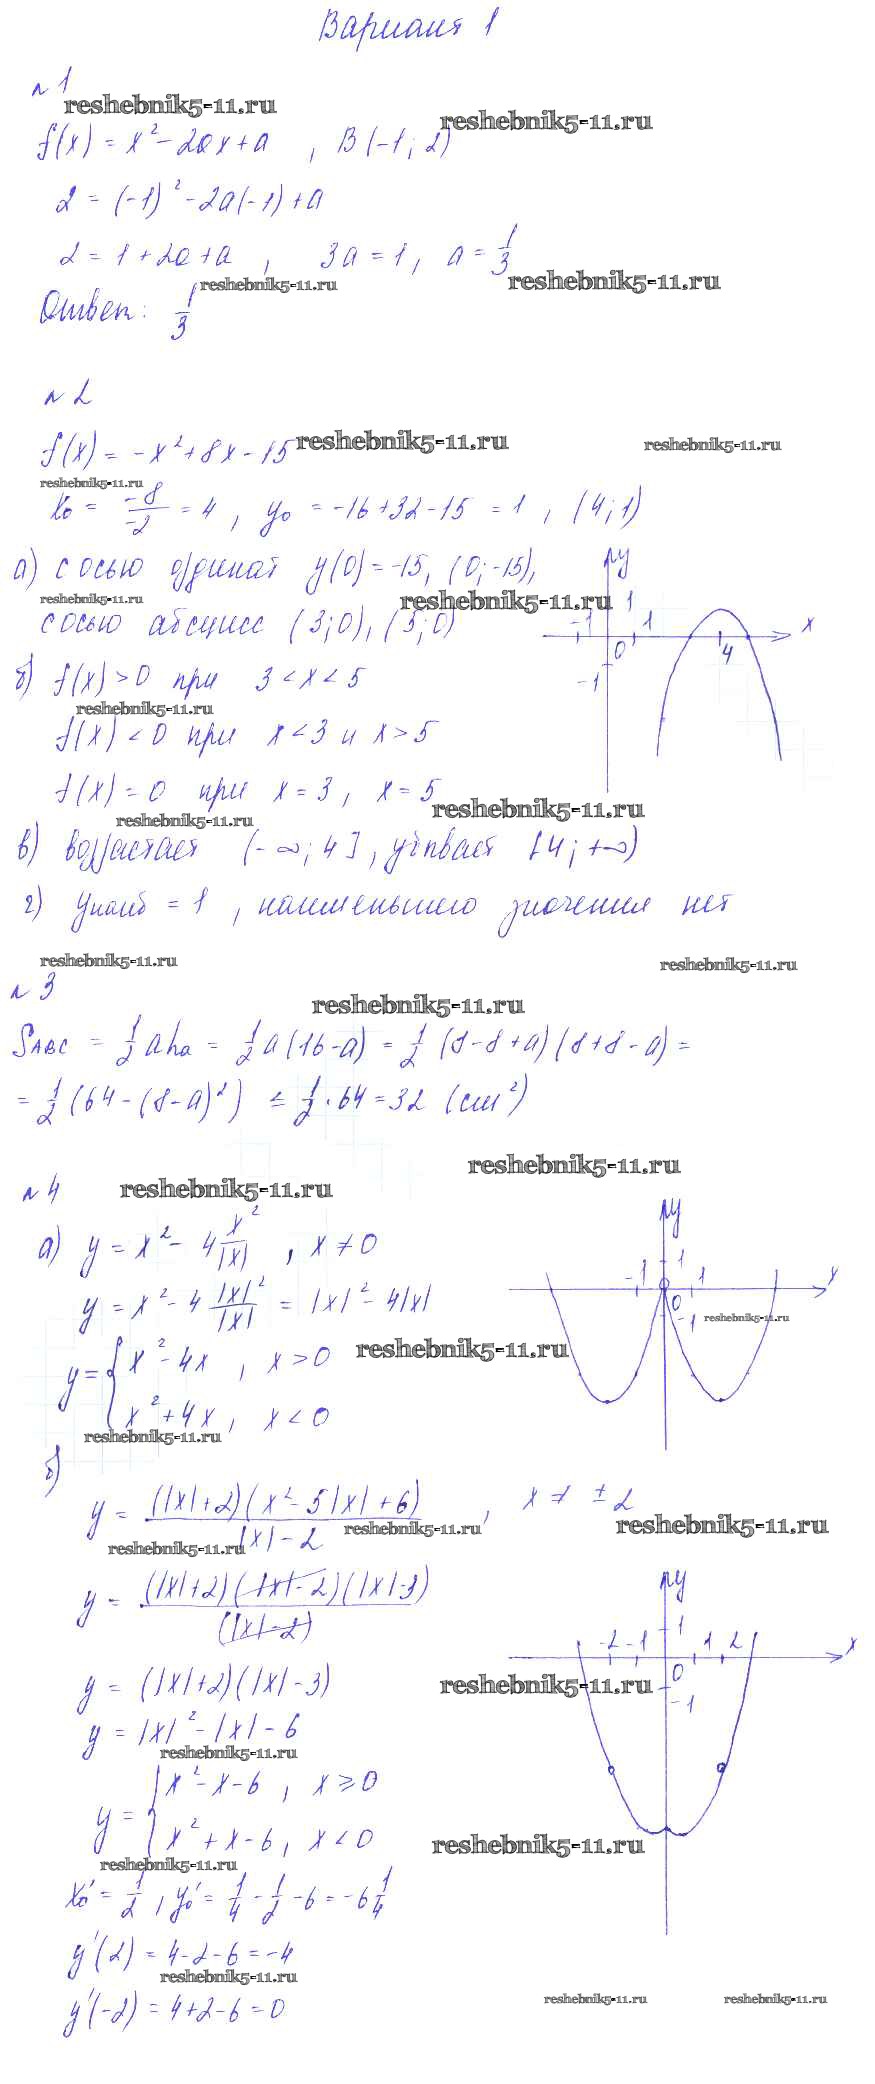 Вариант 1
№1
reshebnik5-11.ru
reshebnik5-11.ru
f(x) = x² - 2ax + a , B(-1; 2)
2 = (-1)² - 2a(-1) + a
2 = 1 + 2a + a , 3a = 1, a = 1/3
reshebnik5-11.ru
reshebnik5-11.ru
Ответ: 1/3
№2
f(x) = -x² + 8x - 15
reshebnik5-11.ru
reshebnik5-11.ru
reshebnik5-11.ru
x₀ = -8/-2 = 4 , y₀ = -16+32-15 = 1 , (4; 1)
а) с осью ординат y(0) = -15, (0; -15),
reshebnik5-11.ru
reshebnik5-11.ru
с осью абсцисс (3; 0), (5; 0)
y
1
-1
1
x
0
4
-1
б) f(x) > 0 при 3 < x < 5
reshebnik5-11.ru
f(x) < 0 при x < 3 и x > 5
f(x) = 0 при x = 3, x = 5
reshebnik5-11.ru
reshebnik5-11.ru
в) возрастает (-∞; 4], убывает [4; +∞)
г) yнаиб = 1 , наименьшего значения нет
reshebnik5-11.ru
reshebnik5-11.ru
№3
reshebnik5-11.ru
SABC = 1/2 aha = 1/2 a(16-a) = 1/2 (8-8+a)(8+8-a) =
= 1/2 (64-(8-a)²) ≤ 1/2 · 64 = 32 (см²)
reshebnik5-11.ru
№4
reshebnik5-11.ru
а) y = x² - 4 x²/|x| , x ≠ 0
y = x² - 4 |x|²/|x| = |x|² - 4|x|
y
1
-1
1
x
0
-1
reshebnik5-11.ru
reshebnik5-11.ru
y = { x² - 4x , x > 0
x² + 4x , x < 0
reshebnik5-11.ru
б)
y = (|x|+2)(x²-5|x|+6) / |x|-2 , x ≠ ±2
reshebnik5-11.ru
reshebnik5-11.ru
reshebnik5-11.ru
y = (|x|+2)(|x|-2)(|x|-3) / (|x|-2)
y
1
-2
-1
1
2
x
0
-1
y = (|x|+2)(|x|-3)
reshebnik5-11.ru
y = |x|² - |x| - 6
reshebnik5-11.ru
y = { x² - x - 6 , x ≥ 0
x² + x - 6 , x < 0
reshebnik5-11.ru
reshebnik5-11.ru
x₀' = 1/2 , y₀' = 1/4 - 1/2 - 6 = -6 1/4
y'(2) = 4 - 2 - 6 = -4
reshebnik5-11.ru
y'(-2) = 4 + 2 - 6 = 0
reshebnik5-11.ru
reshebnik5-11.ru